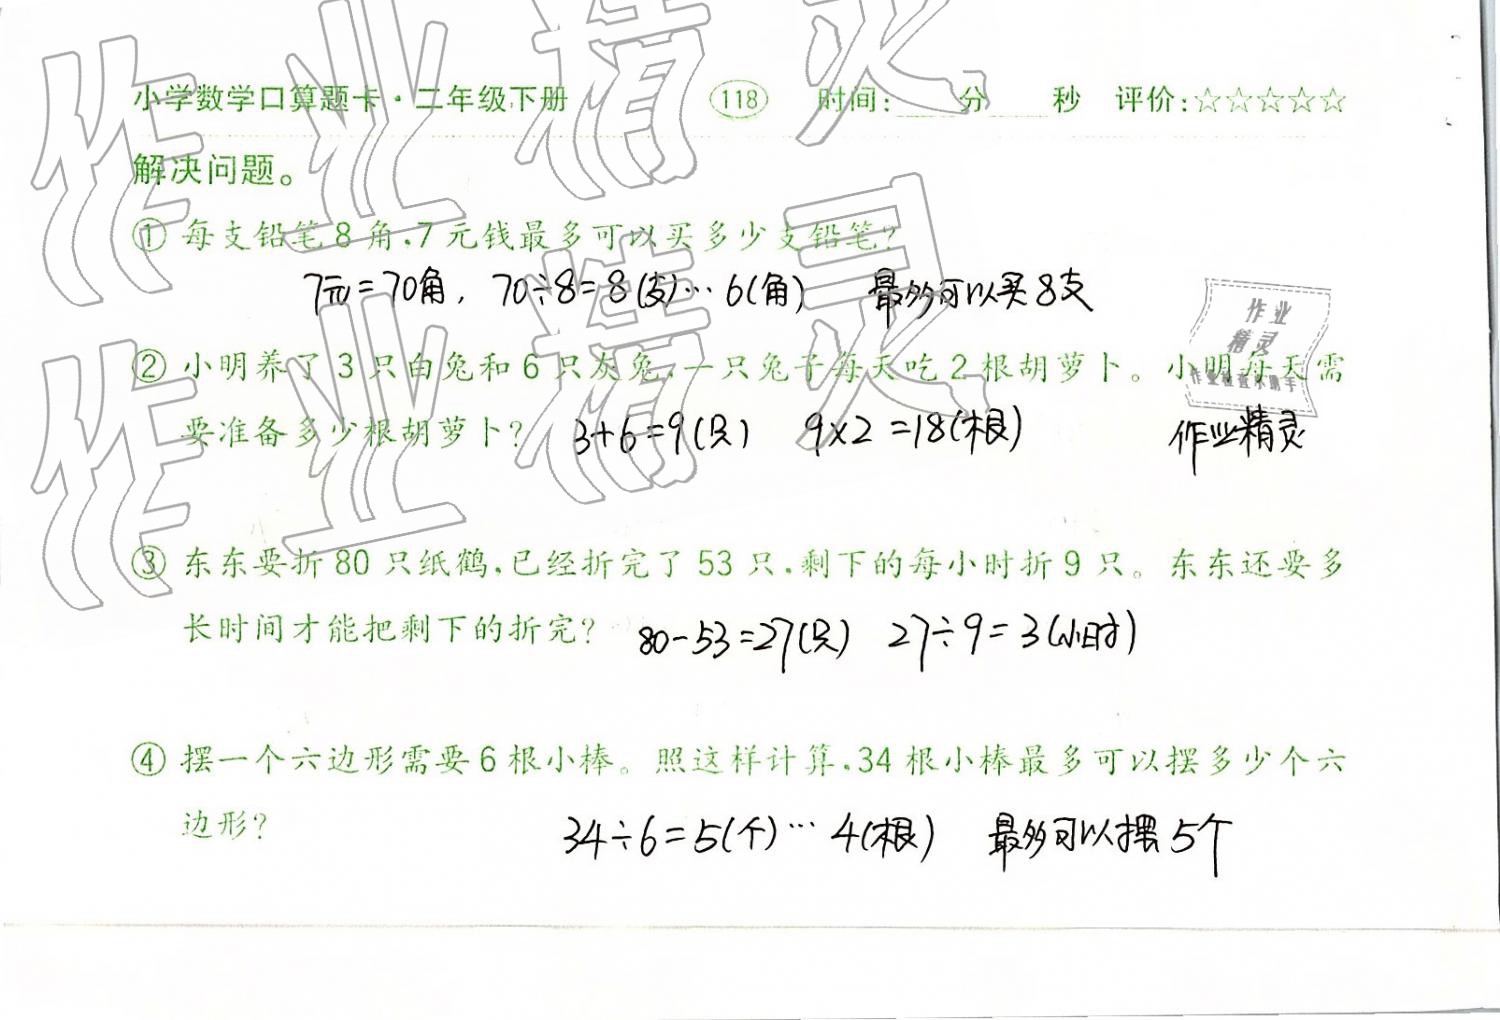 小学数学口算题卡·二年级下册 118 时间:____分____秒 评价:☆☆☆☆☆
解决问题。
① 每支铅笔8角,7元钱最多可以买多少支铅笔?
7元=70角, 70÷8=8(支)…6(角) 最多可以买8支
② 小明养了3只白兔和6只灰兔,一只兔子每天吃2根胡萝卜。小明每天需
要准备多少根胡萝卜? 3+6=9(只) 9×2=18(根) 作业精灵
③ 东东要折80只纸鹤,已经折完了53只,剩下的每小时折9只。东东还要多
长时间才能把剩下的折完? 80-53=27(只) 27÷9=3(小时)
④ 摆一个六边形需要6根小棒。照这样计算,34根小棒最多可以摆多少个六
边形? 34÷6=5(个)…4(根) 最多可以摆5个
作业精灵
作业精灵
作业
精灵
作业检查小助手